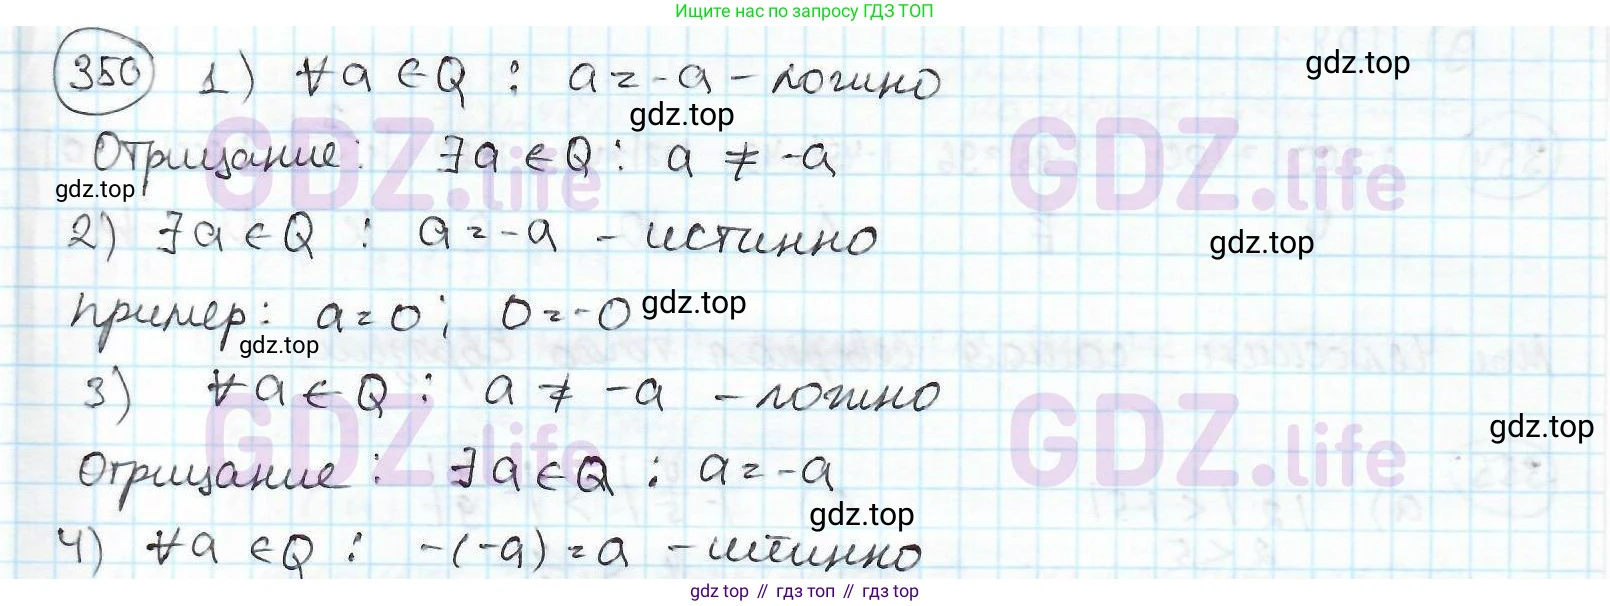 Ищите нас по запросу ГДЗ ТОП
350 1) ∀a ∈ Q : a = -a - ложно
gdz.top
gdz.top
GDZ.life GDZ.life
Отрицание: ∃a ∈ Q : a ≠ -a
gdz.top
2) ∃a ∈ Q : a = -a - истинно
gdz.top
Пример: a = 0; 0 = -0
gdz.top
gdz.top
3) ∀a ∈ Q : a ≠ -a - ложно
GDZ.life GDZ.life
gdz.top
Отрицание: ∃a ∈ Q : a = -a
gdz.top
4) ∀a ∈ Q : -(-a) = a - истинно
gdz top // гдз топ // gdz.top